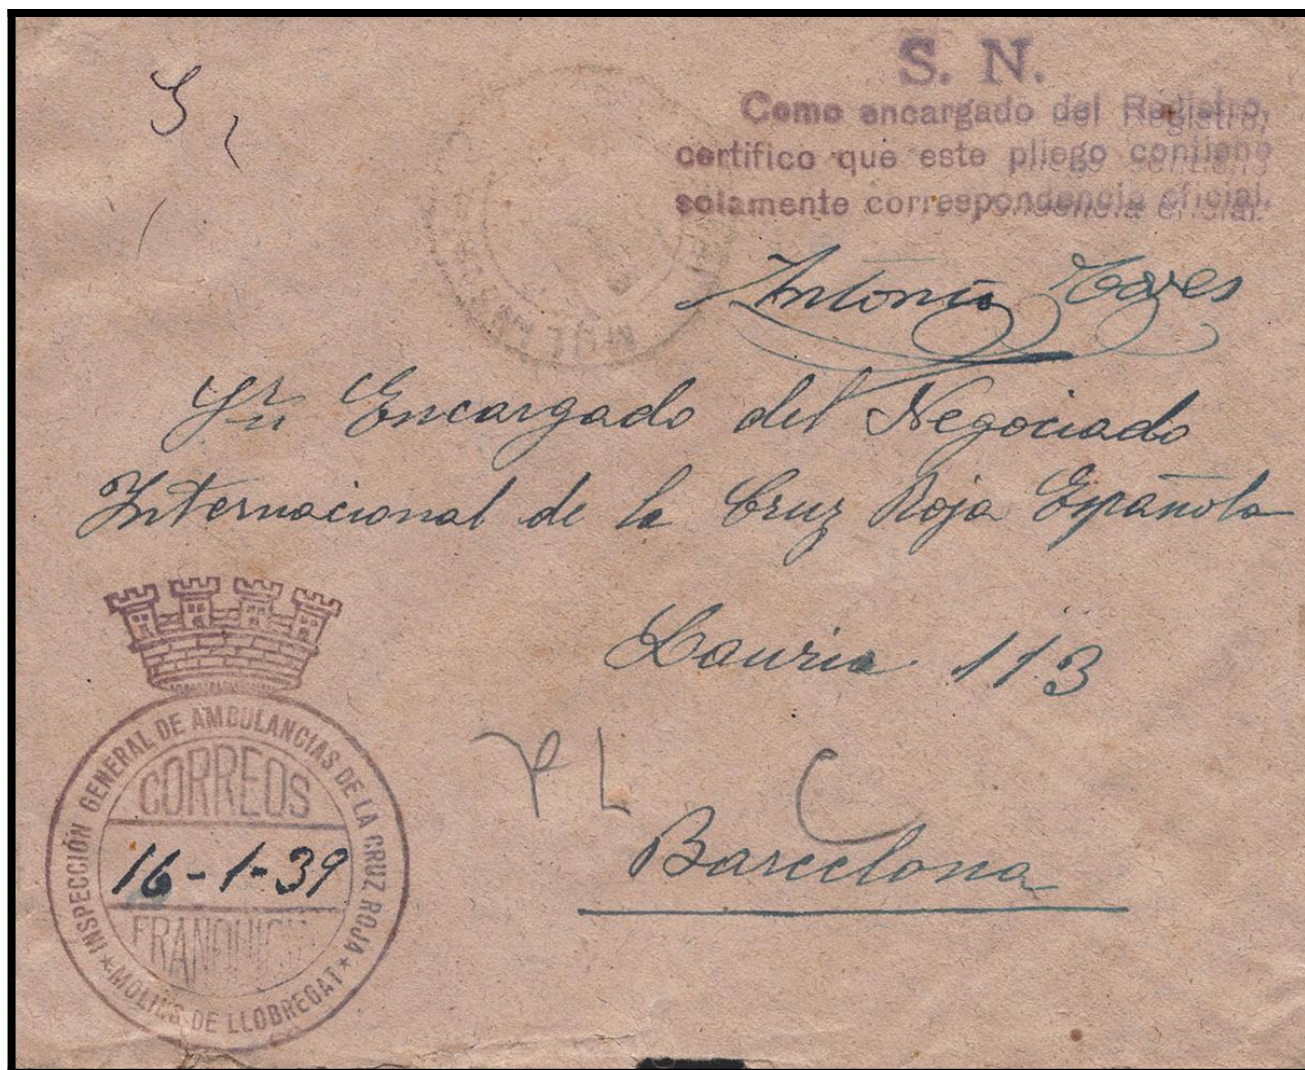 S. N.
Como encargado del Registro,
certifico que este pliego contiene
solamente correspondencia oficial.
Antonio
Sr Encargado del Negociado
Internacional de la Cruz Roja Española
Lauria 113
Barcelona
INSPECCIÓN GENERAL DE AMBULANCIAS DE LA CRUZ ROJA
CORREOS
16-1-39
FRANQUICIA
MOLINS DE LLOBREGAT